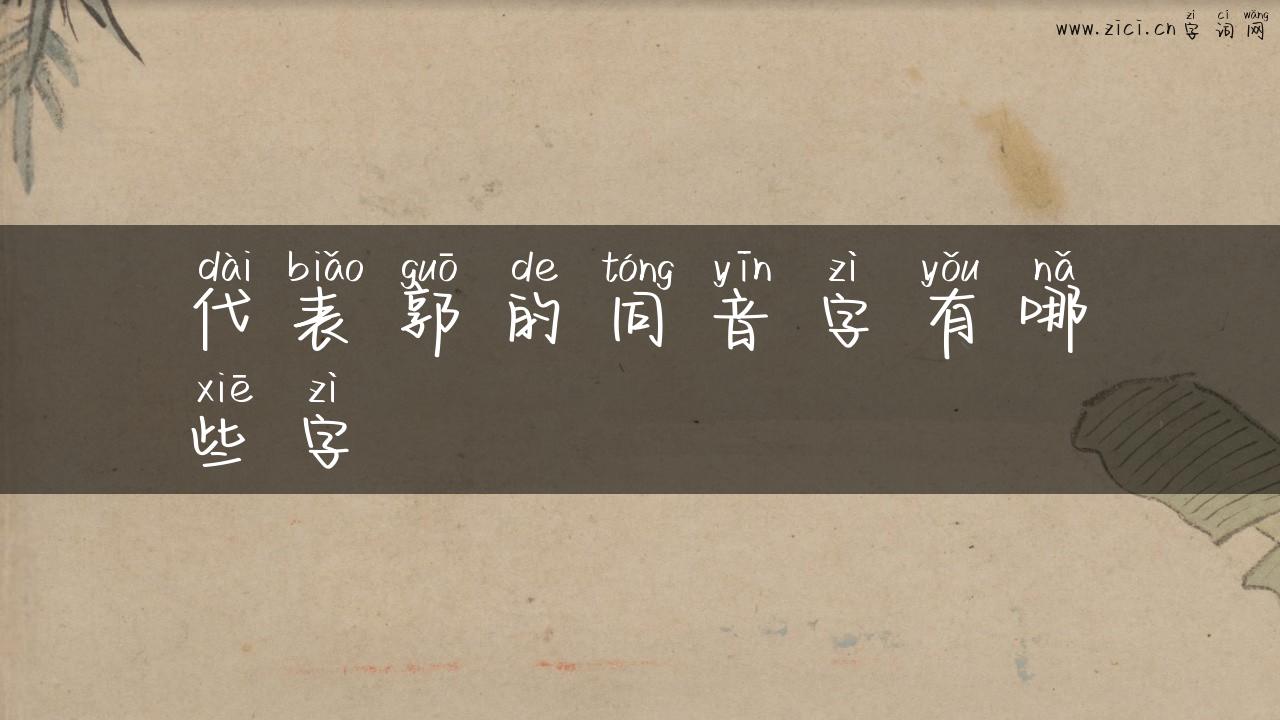 zì cí wǎng
www.zici.cn 字词网
dài biǎo guō de tóng yīn zì yǒu nǎ
代表郭的同音字有哪
xiē zì
些字